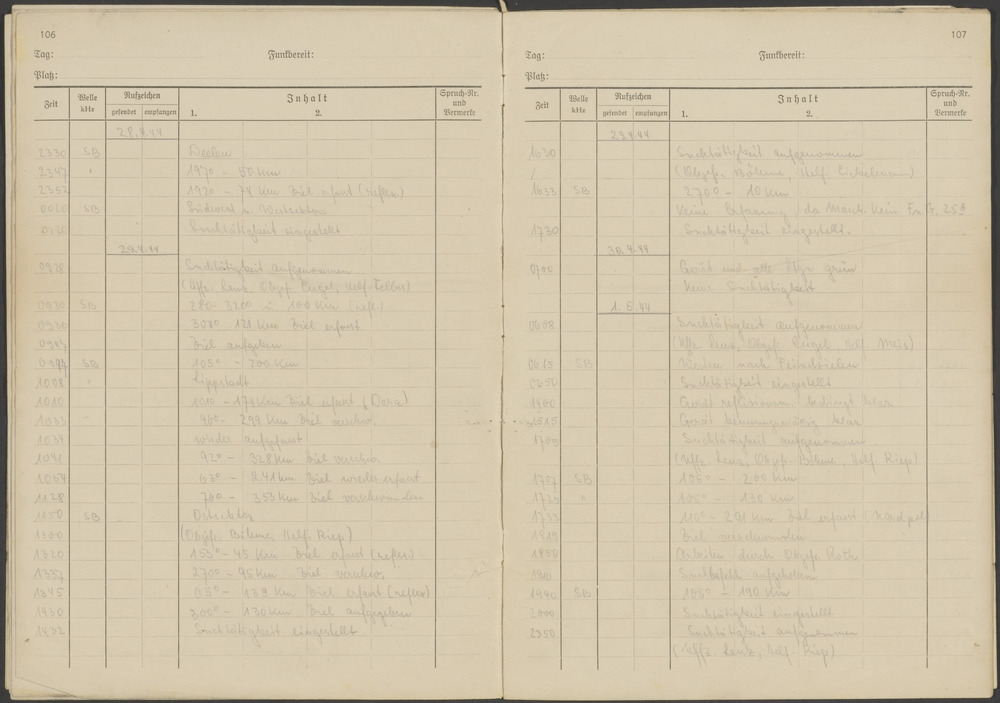 106
Tag: Funkbereit:
Platz:
Zeit Welle kHz Rufzeichen gesendet empfangen Inhalt 1. 2. Spruch-Nr. und Vermerke
28.4.44
2330 SB
2347 " 1970 - 50 km
2352 1920 - 74 km Ziel erfasst (reflex.)
SB Südwest u. Westsektor
Suchtätigkeit eingestellt
29.4.44
0928 Suchtätigkeit aufgenommen
(Uffz. Lenz, Obgfr. Riegel, Helf.
0930 SB 280- 3200 100 km (refl.)
0930 3080 121 km Ziel erfasst
Ziel aufgeben
SB 105° - 200 km
1008 " Lippstadt
1010 1010 - 179 km Ziel erfasst (Dora)
1033 90° - 299 km Ziel verschw.
1034 wieder aufgefasst
1041 92° - 328 km Ziel verschw.
1054 63° - 241 km Ziel wieder erfasst
1128 760 - 353 km Ziel verschwunden
1150 SB Ostsektor
1300 (Obgfr. Böhme, Helf. Riep)
1320 153° - 45 km Ziel erfasst (reflex.)
1337 270° - 95 km Ziel verschw.
1345 05° - 139 km Ziel erfasst (reflex)
1430 300° - 130 km Ziel aufgegeben
1432 Suchtätigkeit eingestellt
107
Tag: Funkbereit:
Platz:
Zeit Welle kHz Rufzeichen gesendet empfangen Inhalt 1. 2. Spruch-Nr. und Vermerke
29.4.44
1630 Suchtätigkeit aufgenommen
(Obgfr. Böhme, Helf.
1633 SB 270° - 10 km
Keine Erfassung, da kein
1730 Suchtätigkeit eingestellt.
30.4.44
0700 Gerät und alle grün
Keine Suchtätigkeit
1.5.44
0608 Suchtätigkeit aufgenommen
(Uffz. Lenz, Obgfr. Riegel, Helf. Meis)
0615 SB Werden nach
0650 Suchtätigkeit eingestellt
1400 Gerät bedingt klar
1515 Gerät klar
1705 Suchtätigkeit aufgenommen
(Uffz. Lenz, Obgfr. Böhme, Helf. Riep)
1707 SB 105° - 200 km
1725 " 105° - 130 km
1733 110° - 201 km Ziel erfasst
1819 Ziel verschwunden
1850 Arbeiten durch Obgfr. Roth
aufgehoben
1940 SB 105° - 190 km
2000 Suchtätigkeit eingestellt
2350 Suchtätigkeit aufgenommen
(Uffz. Lenz, Helf. Riep)